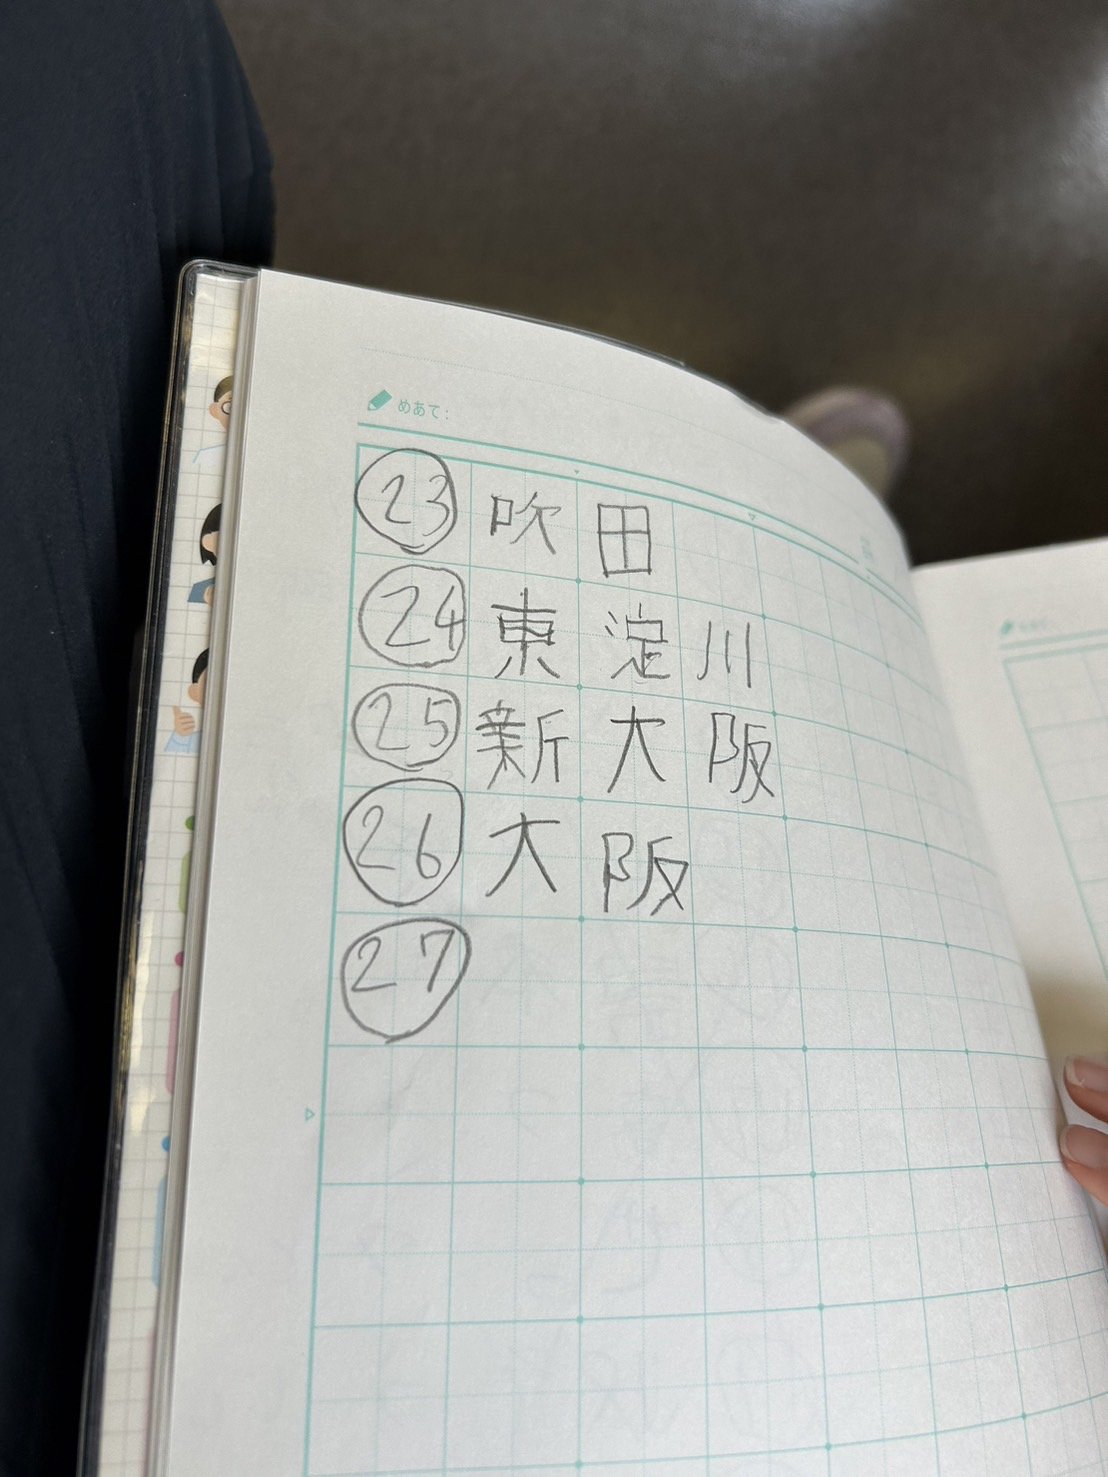 めあて：
㉓ 吹田
㉔ 東淀川
㉕ 新大阪
㉖ 大阪
㉗